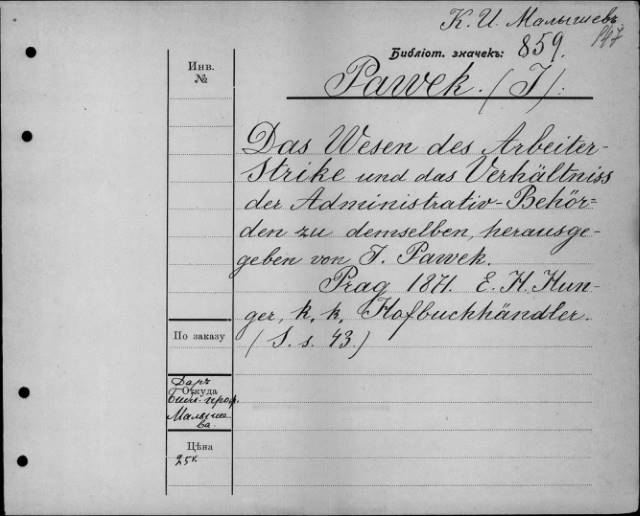 К. И. Малышевъ
147
Библіот. значекъ: 859.
Pawek. (J):
Инв.
№
Das Wesen des Arbeiter-
Strike und das Verhältniss
der Administrativ-Behör=
den zu demselben, herausge-
geben von J. Pawek.
Prag 1871. E. H. Hun-
ger, k. k. Hofbuchhändler.
(S. s. 43.)
По заказу
Даръ
Откуда
проф.
Малыше
ва.
Цѣна
25к